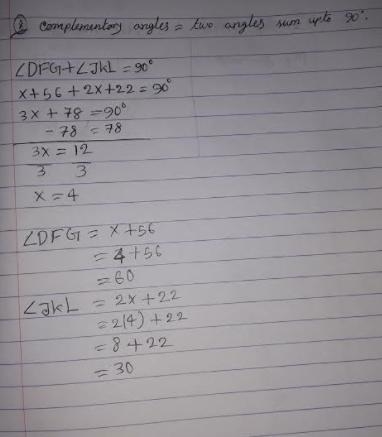 ② complementary angles = two angles sum upto 90°.
∠DFG+∠JKL = 90°
x+56+2x+22=90°
3x+78=90°
-78 = 78
3x = 12
3 3
x=4
∠DFG = x+56
= 4+56
=60
∠JKL = 2x+22
=2(4)+22
=8+22
=30